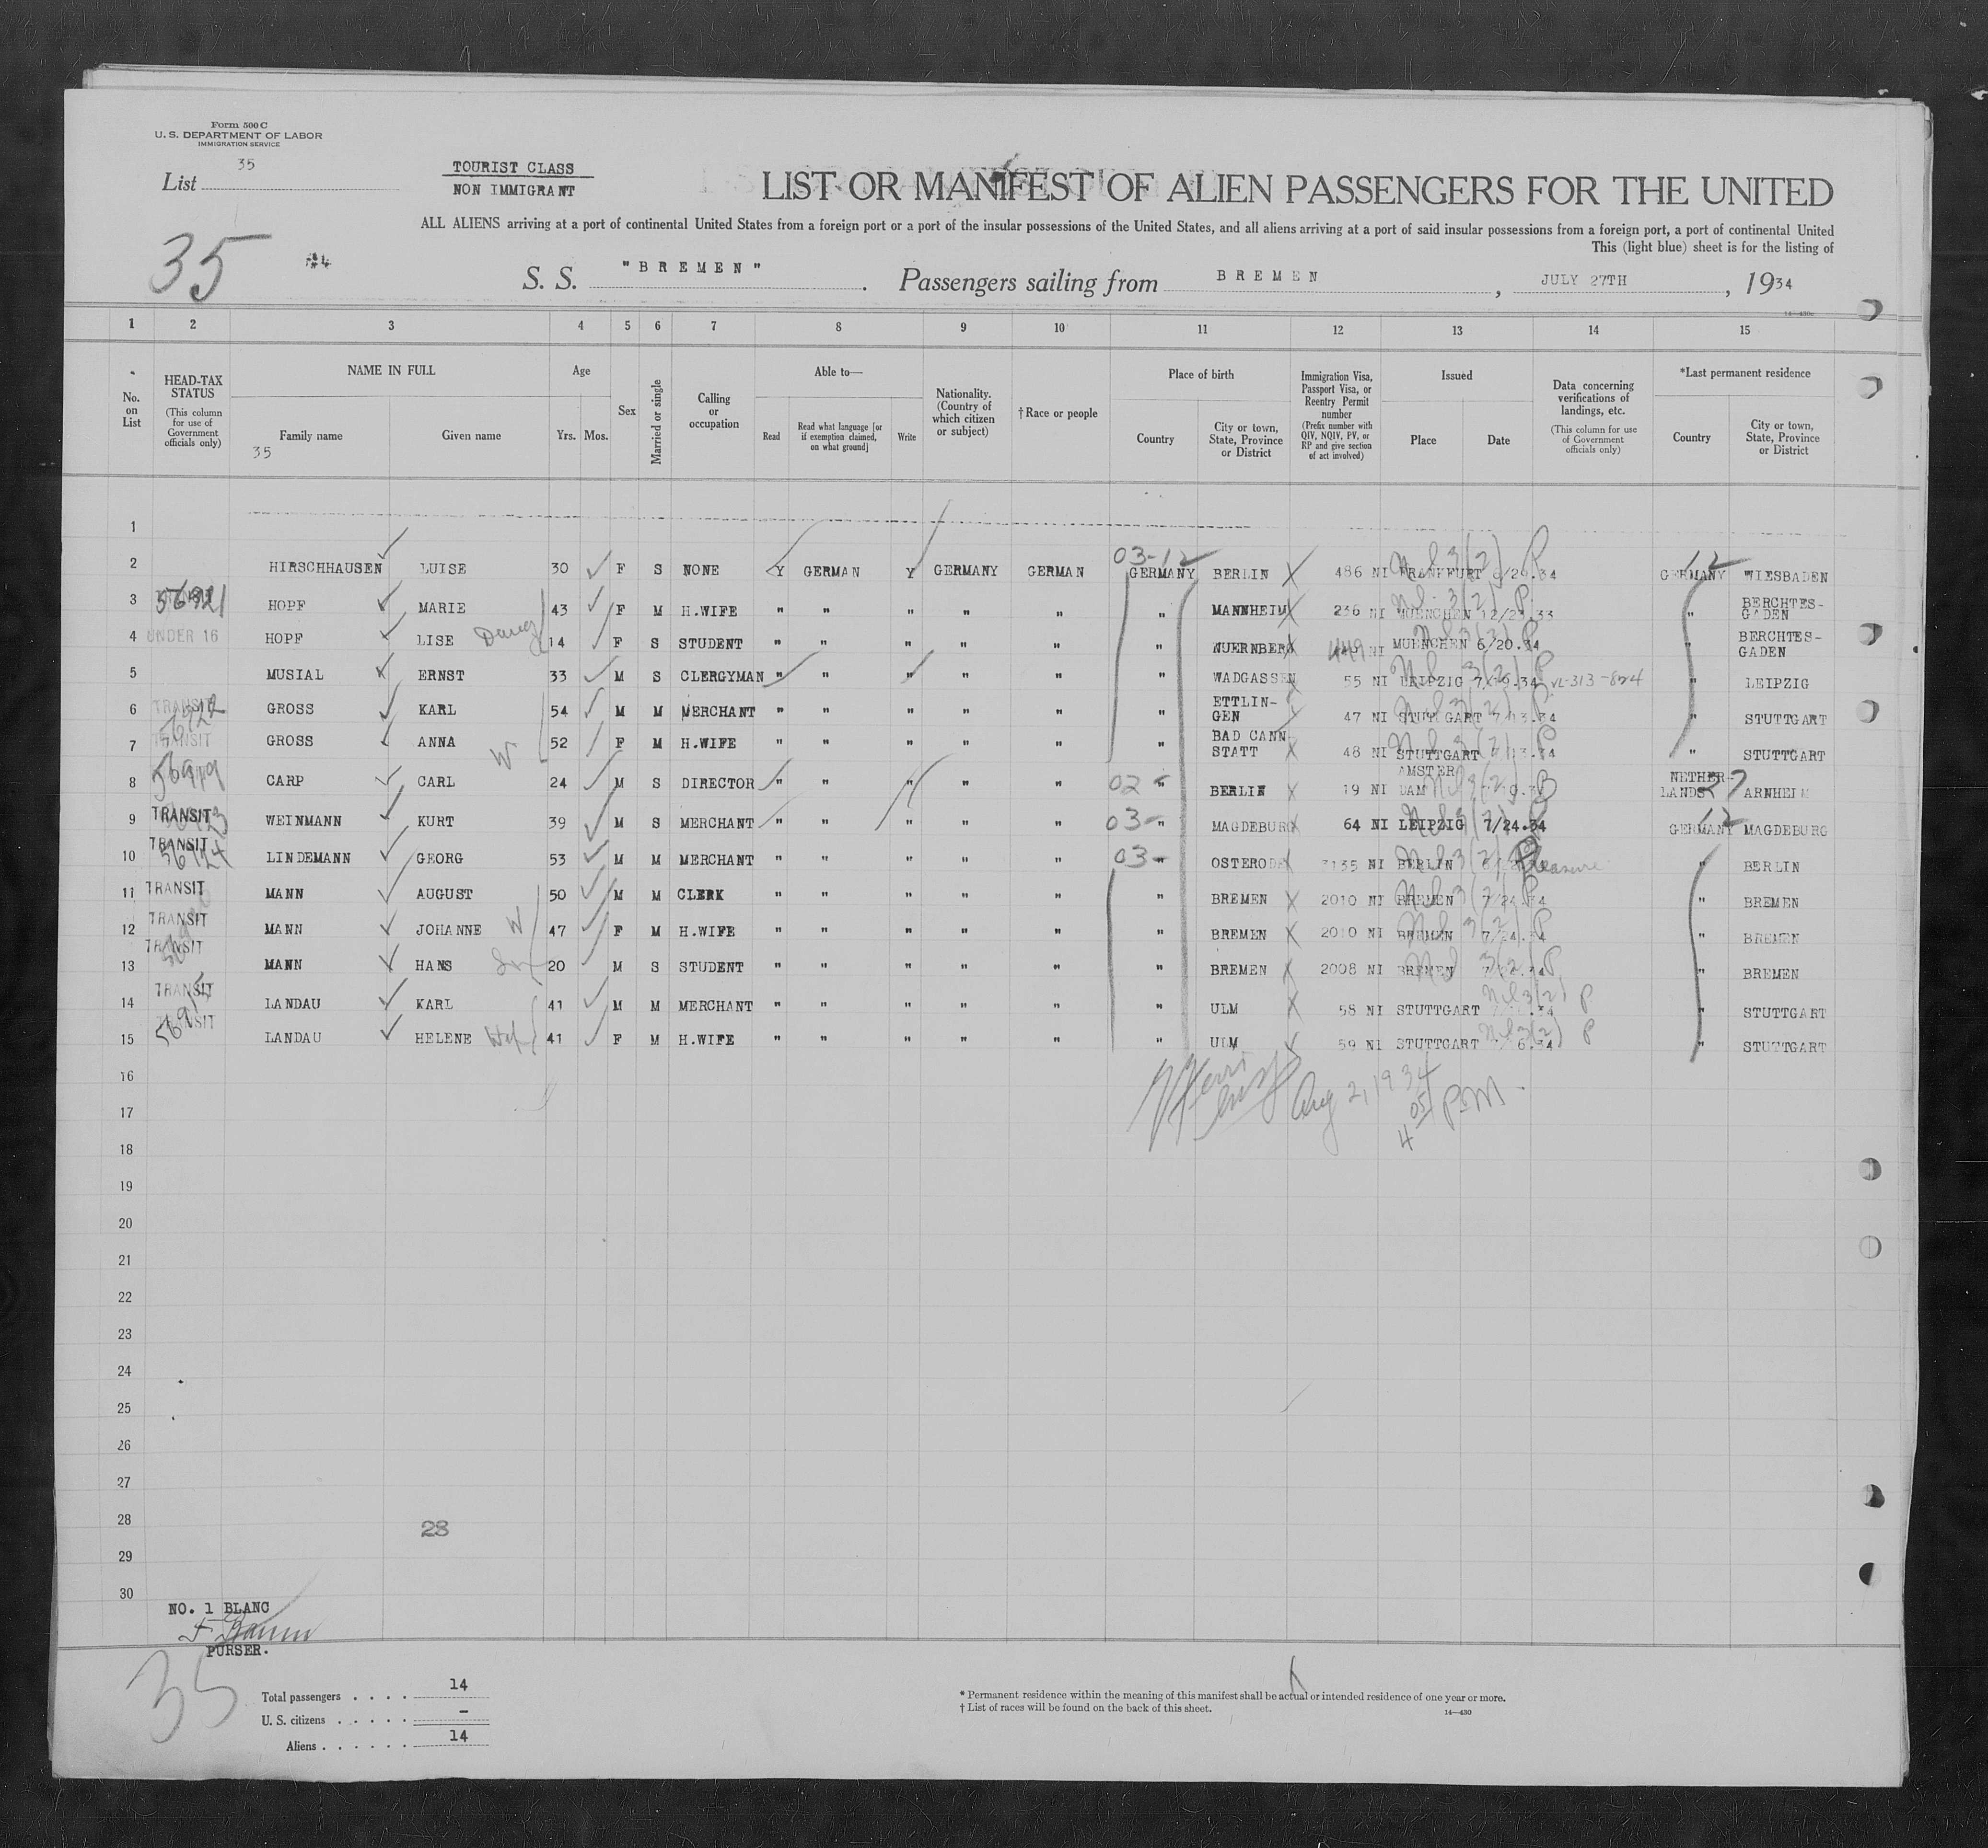 Form 500 C
U. S. DEPARTMENT OF LABOR
IMMIGRATION SERVICE
List 35
TOURIST CLASS
NON IMMIGRANT
LIST OR MANIFEST OF ALIEN PASSENGERS FOR THE UNITED
ALL ALIENS arriving at a port of continental United States from a foreign port or a port of the insular possessions of the United States, and all aliens arriving at a port of said insular possessions from a foreign port, a port of continental United
This (light blue) sheet is for the listing of
35
S. S. "BREMEN". Passengers sailing from BREMEN, JULY 27TH, 1934
1 2 3 4 5 6 7 8 9 10 11 12 13 14 15
No. on List
HEAD-TAX STATUS
(This column for use of Government officials only)
NAME IN FULL
Family name
35
Given name
Age
Yrs. Mos.
Sex
Married or single
Calling or occupation
Able to—
Read
Read what language [or if exemption claimed, on what ground]
Write
Nationality. (Country of which citizen or subject)
† Race or people
Place of birth
Country
City or town, State, Province or District
Immigration Visa, Passport Visa, or Reentry Permit number
(Prefix number with QIV, NQIV, PV, or RP and give section of act involved)
Issued
Place
Date
Data concerning verifications of landings, etc.
(This column for use of Government officials only)
*Last permanent residence
Country
City or town, State, Province or District
1
03-12 12
2 HIRSCHHAUSEN LUISE 30 F S NONE Y GERMAN Y GERMANY GERMAN GERMANY BERLIN 486 NI FRANKFURT GERMANY WIESBADEN
3 HOPF MARIE 43 F M H.WIFE " " " " " " MANNHEIM 236 NI MUENCHEN " BERCHTES-GADEN
4 UNDER 16 HOPF LISE Daug 14 F S STUDENT " " " " " " NUERNBERG 449 NI MUENCHEN 6/20.34 " BERCHTES-GADEN
5 MUSIAL ERNST 33 M S CLERGYMAN " " " " " " WADGASSEN 55 NI LEIPZIG " LEIPZIG
6 TRANSIT GROSS KARL 54 M M MERCHANT " " " " " " ETTLIN-GEN 47 NI STUTTGART " STUTTGART
7 TRANSIT GROSS ANNA W 52 F M H.WIFE " " " " " " BAD CANN-STATT 48 NI STUTTGART " STUTTGART
8 CARP CARL 24 M S DIRECTOR " " " " " 02 - " BERLIN 19 NI AMSTERDAM NETHER-LANDS 27 ARNHEIM
9 TRANSIT WEINMANN KURT 39 M S MERCHANT " " " " " 03- " MAGDEBURG 64 NI LEIPZIG 7/24.34 GERMANY 12 MAGDEBURG
10 TRANSIT LINDEMANN GEORG 53 M M MERCHANT " " " " " 03- " OSTERODE 3135 NI BERLIN Pleasure " BERLIN
11 TRANSIT MANN AUGUST 50 M M CLERK " " " " " " BREMEN 2010 NI BREMEN 7/24.34 " BREMEN
12 TRANSIT MANN JOHANNE W 47 F M H.WIFE " " " " " " BREMEN 2010 NI BREMEN 7/24.34 " BREMEN
13 TRANSIT MANN HANS 20 M S STUDENT " " " " " " BREMEN 2008 NI BREMEN " BREMEN
14 TRANSIT LANDAU KARL 41 M M MERCHANT " " " " " " ULM 58 NI STUTTGART " STUTTGART
15 TRANSIT LANDAU HELENE 41 F M H.WIFE " " " " " " ULM 59 NI STUTTGART " STUTTGART
16
Aug 2, 1934
17
4 05 P.M
18
19
20
21
22
23
24
25
26
27
28 28
29
30
NO. 1 BLANC
PURSER.
35
Total passengers . . . . 14
U. S. citizens . . . . . -
Aliens . . . . . . 14
* Permanent residence within the meaning of this manifest shall be actual or intended residence of one year or more.
† List of races will be found on the back of this sheet.
14—430